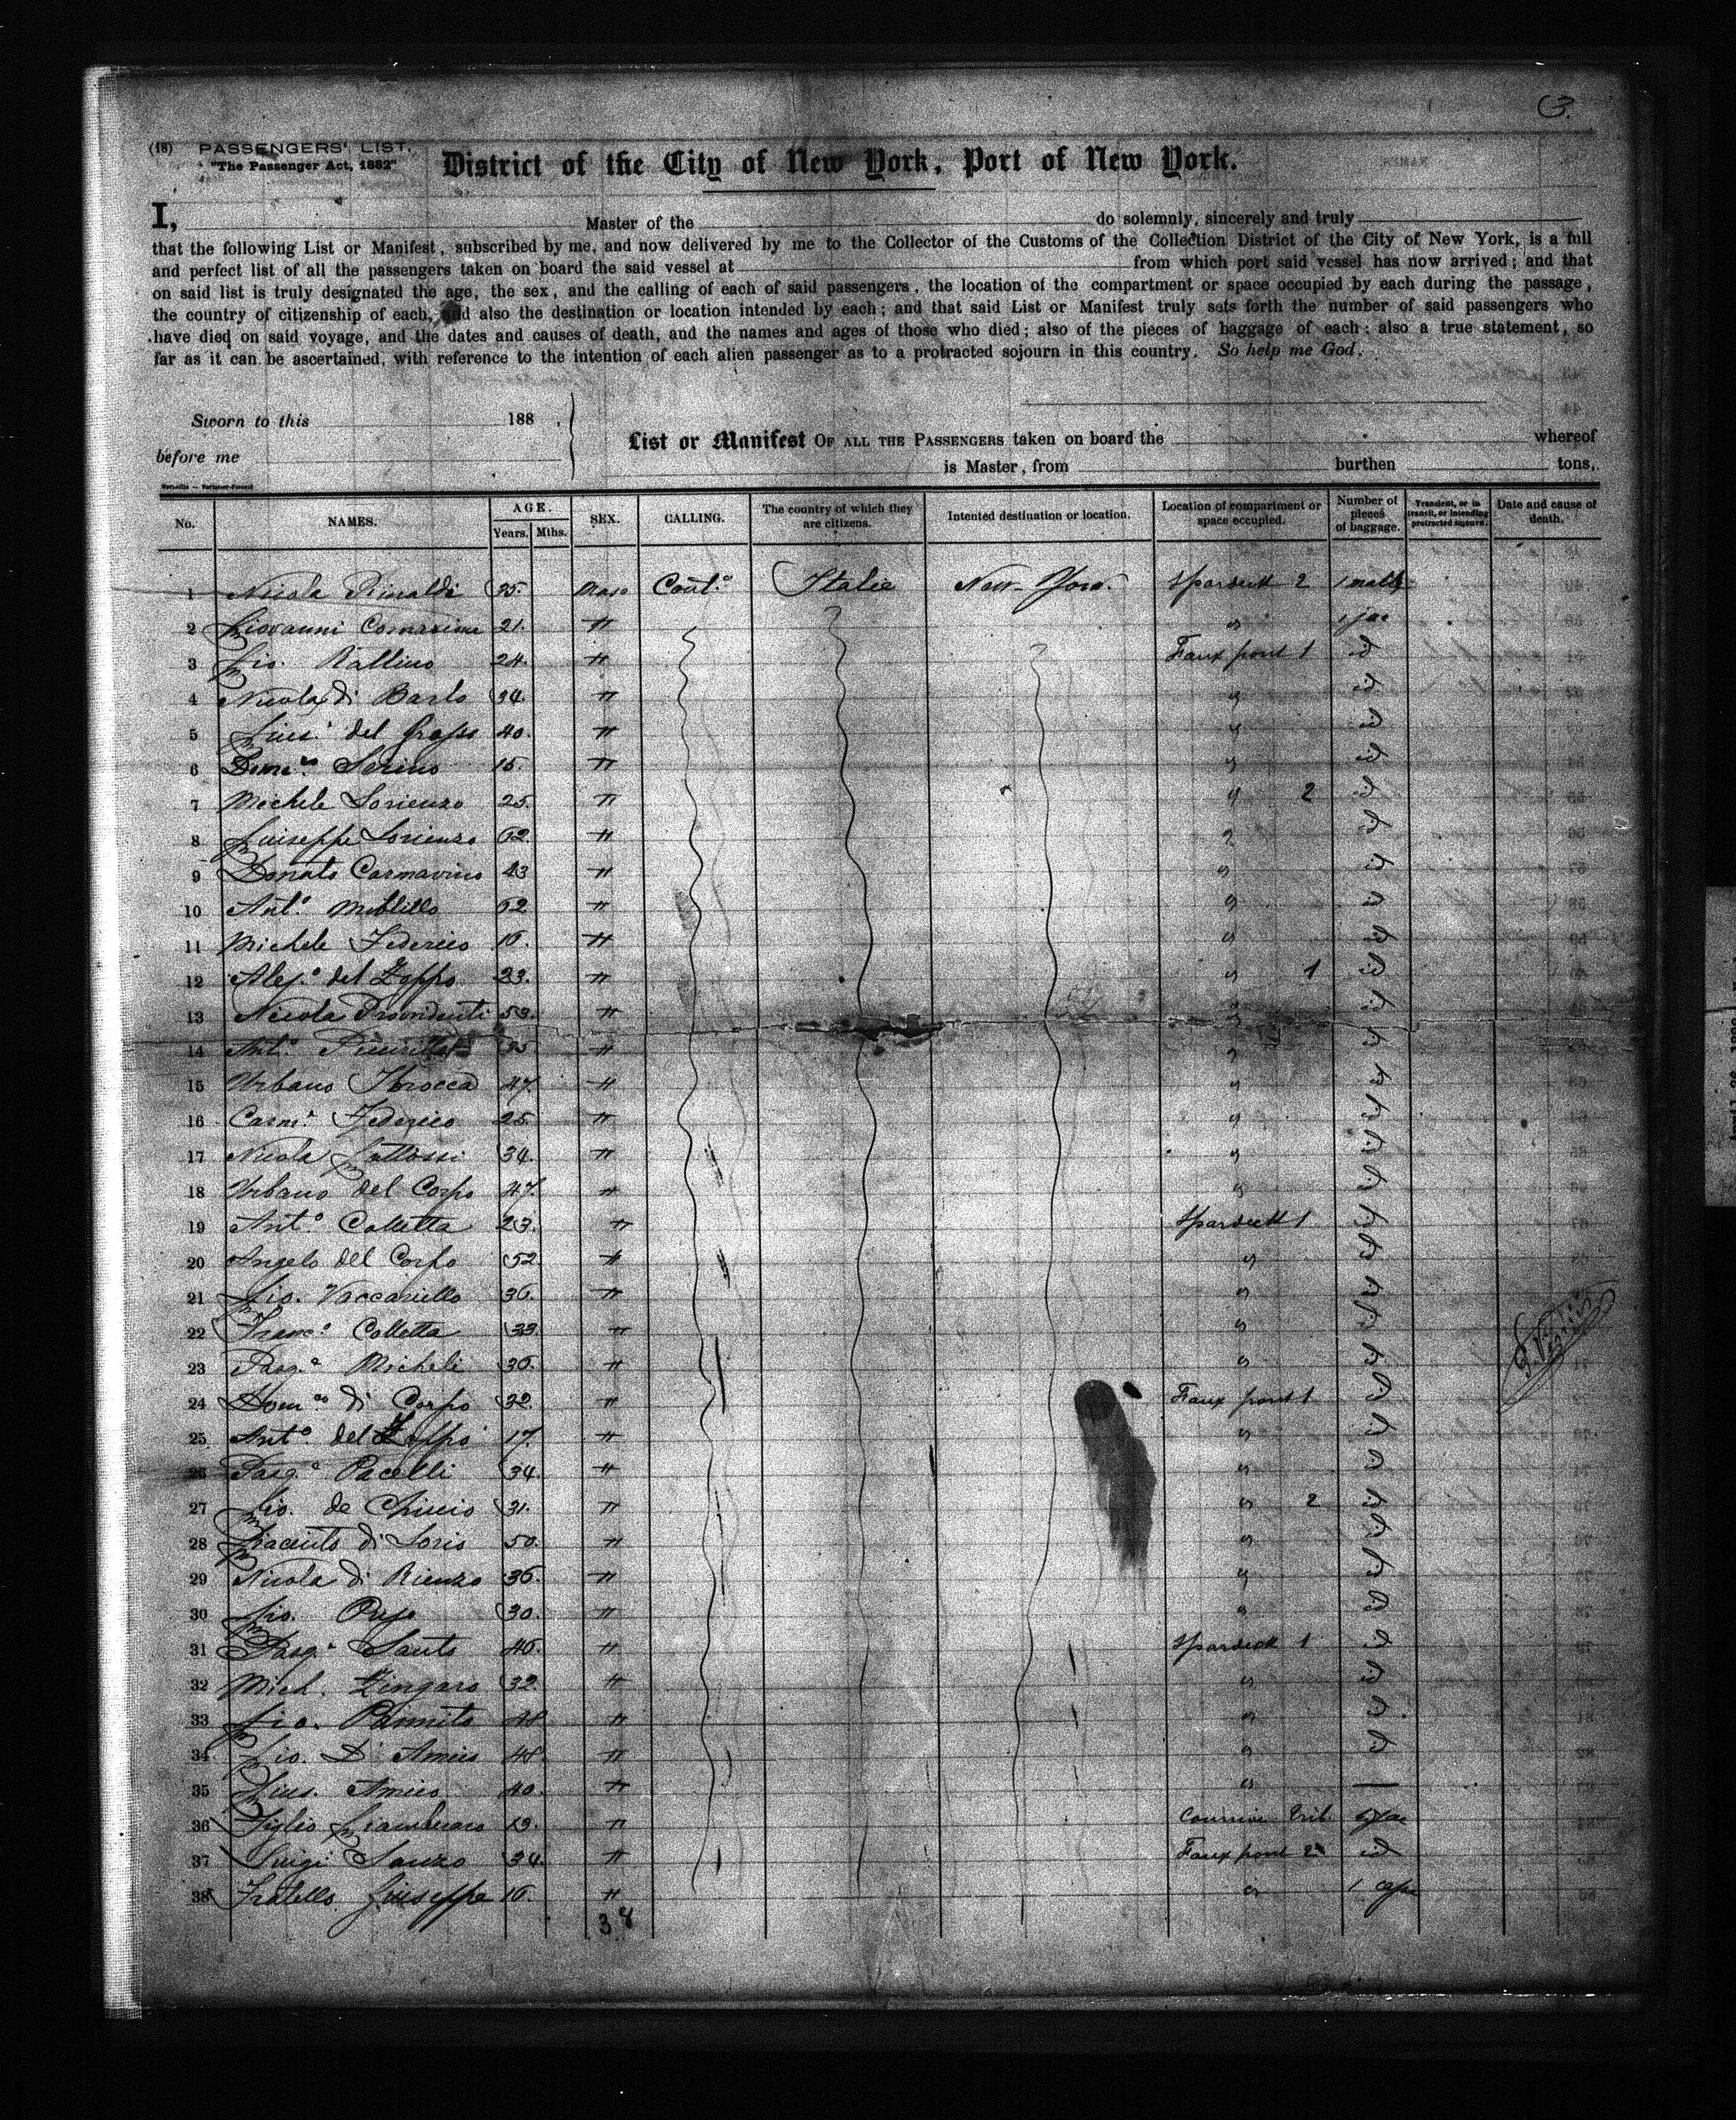 3.
(18) PASSENGERS' LIST.
"The Passenger Act, 1882"
District of the City of New York, Port of New York.
I, Master of the do solemnly, sincerely and truly
that the following List or Manifest, subscribed by me, and now delivered by me to the Collector of the Customs of the Collection District of the City of New York, is a full
and perfect list of all the passengers taken on board the said vessel at from which port said vessel has now arrived; and that
on said list is truly designated the age, the sex, and the calling of each of said passengers, the location of the compartment or space occupied by each during the passage,
the country of citizenship of each, and also the destination or location intended by each; and that said List or Manifest truly sets forth the number of said passengers who
have died on said voyage, and the dates and causes of death, and the names and ages of those who died; also of the pieces of baggage of each: also a true statement, so
far as it can be ascertained, with reference to the intention of each alien passenger as to a protracted sojourn in this country. So help me God.
Sworn to this 188 .
before me
List or Manifest OF ALL THE PASSENGERS taken on board the whereof
is Master, from burthen tons,
No. NAMES. AGE. Years. Mths. SEX. CALLING. The country of which they are citizens. Intented destination or location. Location of compartment or space occupied. Number of pieces of baggage. Transient, or in transit, or intending protracted sojourn. Date and cause of death.
1 Nicola Rinaldi 35. Masc Cont.º Italie New-York. Spardeck 2 1 malle
2 Giovanni 21. " " 1 sac
3 Gio. Rallino 24. " Faux pont 1 id
4 Nicola di Barlo 34. " " id
5 del Grosso 40. " " id
6 Dom.co Serino 15. " " id
7 Michele Lorienzo 25. " " 2 id
8 Giuseppe Lorienzo 62. " " id
9 Donato Carmavino 43 " " id
10 Ant.º 62 " " id
11 Michele Federico 16. " " id
12 Ales.º del Zoppo 23. " " 1 id
13 Nicola 53. " " id
14 Ant.º 35 " " id
15 Urbano 47. " " id
16 Carm.e Federico 25. " " id
17 Nicola 34. " " id
18 Urbano del Corpo 47. " " id
19 Ant.º Colletta 23. " Spardeck 1 id
20 Angelo del Corpo 52 " " id
21 Gio. Vaccariello 36. " " id
22 Franc.º Colletta 33. " " id
23 Pasq.e Micheli 36. " " id
24 Dom.co di Corpo 32. " Faux pont 1 id
25 Ant.º del Zoppo 17. " " id
26 Pasq.e Pacelli 34. " " id
27 Gio. de 31. " " 2 id
28 Giacinto di Iorio 50. " " id
29 Nicola di Rienzo 36. " " id
30 Gio. 30. " " id
31 Pasq.e Santo 46. " Spardeck 1 id
32 Mich. Zingaro 32. " " id
33 Gio. Pannito 48 " " id
34 Gio. D'Amico 48. " " id
35 Gius. Amico 40. " " —
36 Figlio 19. "
37 Luigi Sanzo 34. " Faux pont 2 id
38 Fratello Giuseppe 16. " "
38